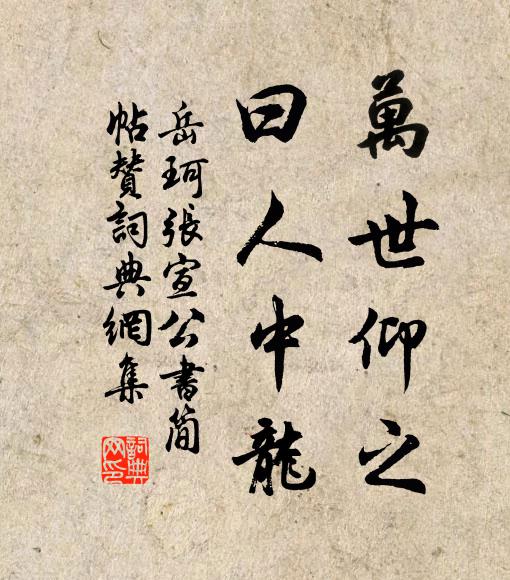 萬世仰之
曰人中龍
岳珂張宣公書簡
帖贊詞典網集
詞典网印